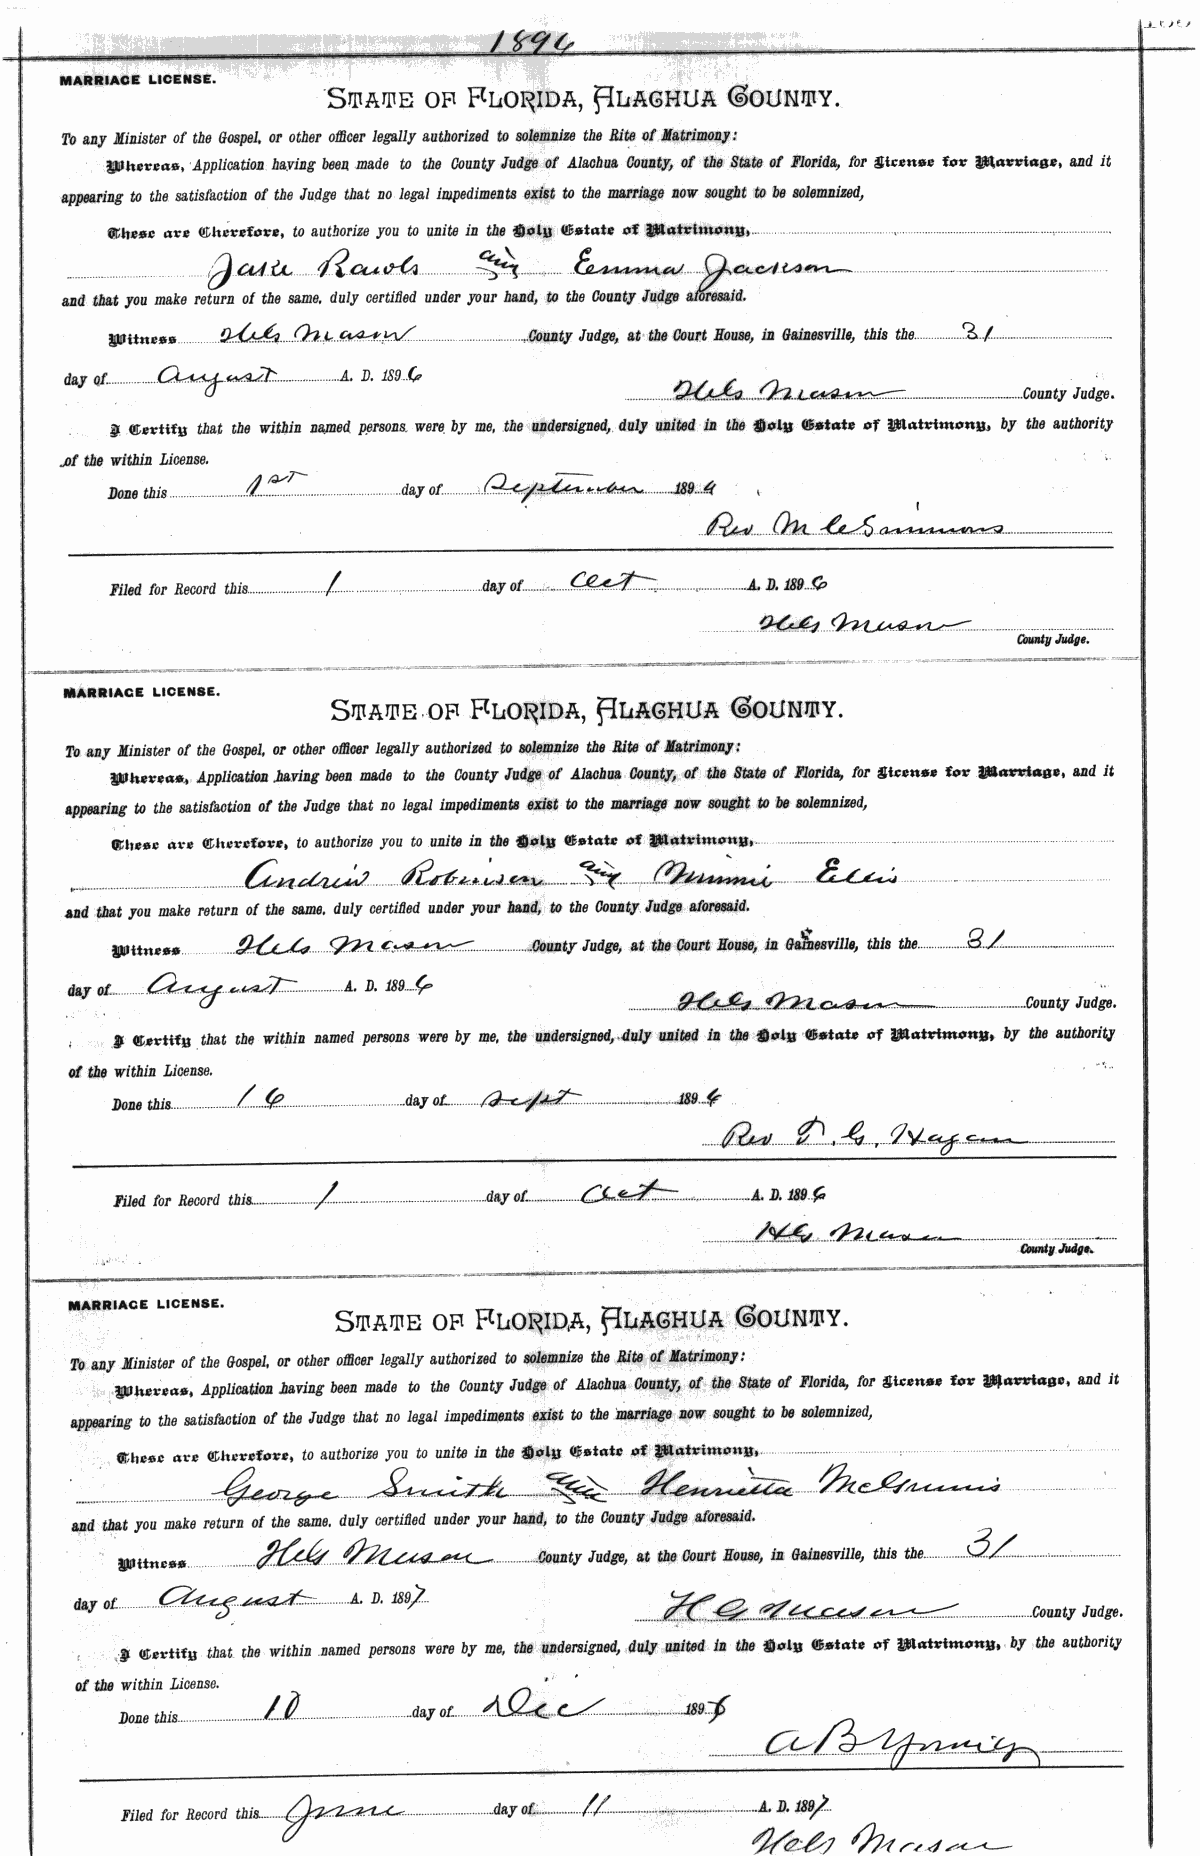 1896
MARRIAGE LICENSE.
STATE OF FLORIDA, ALACHUA COUNTY.
To any Minister of the Gospel, or other officer legally authorized to solemnize the Rite of Matrimony:
Whereas, Application having been made to the County Judge of Alachua County, of the State of Florida, for License for Marriage, and it
appearing to the satisfaction of the Judge that no legal impediments exist to the marriage now sought to be solemnized,
These are Therefore, to authorize you to unite in the Holy Estate of Matrimony,
Jake Rawls and Emma Jackson
and that you make return of the same, duly certified under your hand, to the County Judge aforesaid.
Witness Mason County Judge, at the Court House, in Gainesville, this the 31
day of August A. D. 1896
Mason County Judge.
I Certify that the within named persons were by me, the undersigned, duly united in the Holy Estate of Matrimony, by the authority
of the within License.
Done this 1st day of September 1896
Rev M C Simmons
Filed for Record this 1 day of Oct A. D. 1896
Mason
County Judge.
MARRIAGE LICENSE.
STATE OF FLORIDA, ALACHUA COUNTY.
To any Minister of the Gospel, or other officer legally authorized to solemnize the Rite of Matrimony:
Whereas, Application having been made to the County Judge of Alachua County, of the State of Florida, for License for Marriage, and it
appearing to the satisfaction of the Judge that no legal impediments exist to the marriage now sought to be solemnized,
These are Therefore, to authorize you to unite in the Holy Estate of Matrimony,
Andrew Robinson and Minnie Ellis
and that you make return of the same, duly certified under your hand, to the County Judge aforesaid.
Witness Mason County Judge, at the Court House, in Gainesville, this the 31
day of August A. D. 1896
Mason County Judge.
I Certify that the within named persons were by me, the undersigned, duly united in the Holy Estate of Matrimony, by the authority
of the within License.
Done this 16 day of Sept 1896
Rev T. G. Hagan
Filed for Record this 1 day of Oct A. D. 1896
Mason
County Judge.
MARRIAGE LICENSE.
STATE OF FLORIDA, ALACHUA COUNTY.
To any Minister of the Gospel, or other officer legally authorized to solemnize the Rite of Matrimony:
Whereas, Application having been made to the County Judge of Alachua County, of the State of Florida, for License for Marriage, and it
appearing to the satisfaction of the Judge that no legal impediments exist to the marriage now sought to be solemnized,
These are Therefore, to authorize you to unite in the Holy Estate of Matrimony,
George Smith and Henrietta McGinnis
and that you make return of the same, duly certified under your hand, to the County Judge aforesaid.
Witness Mason County Judge, at the Court House, in Gainesville, this the 31
day of August A. D. 1897
H G Mason County Judge.
I Certify that the within named persons were by me, the undersigned, duly united in the Holy Estate of Matrimony, by the authority
of the within License.
Done this 10 day of Dec 1896
A B
Filed for Record this June day of 11 A. D. 1897
Mason